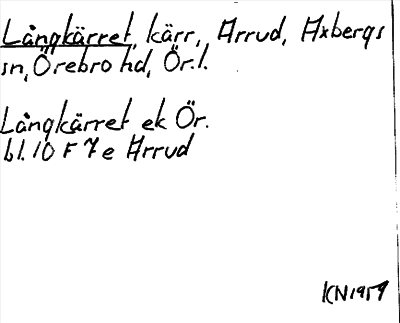 Långkärret, kärr, Arrud, Axbergs
sn, Örebro hd, Ör.l.
Långkärret ek Ör.
bl. 10 F 7 e Arrud
KN 1959